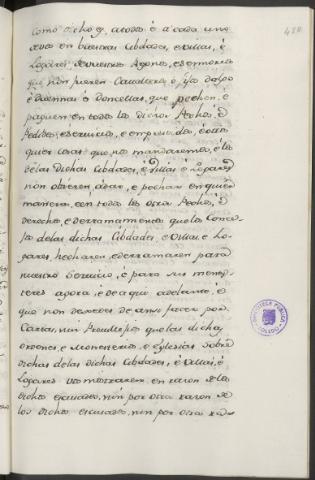 Como dicho es, a todos é a cada uno
de vos en buestras Cibdades, é Villas, é
Logares
que non fueren Cavalleros, o fijos dalgo
é Duennas ó Doncellas, que pechen, é
paguen en todos los dichos Pechos, é
Pedidos, é servicios, é emprestidos, é otras
quier cosas que nos mandaremos, é los
de las dichas Cibdades, é Villas é Logares
non obieren á dar, é pechar en qualquier
manera, é en todos los otros Pechos, é
derechos, é derramamientos que los Conce-
jos de las dichas Cibdades, é Villas, é Lo-
gares, hecharen é derramaren para
nuestro Servicio, é para sus menes-
teres agora, é de aqui adelante, é
que non dexedes de ansi facer por
Cartas, nin Previllejos que las dichas
Ordenes, é Monesterios, é Eglesias sobre
dichas de las dichas Cibdades, é Villas, é
Logares vos mostraren en razon de los
dichos escusados, nin por otra razon de
los dichos escusados, nin por otra ra-
BIBLIOTECA PUBLICA
TOLEDO